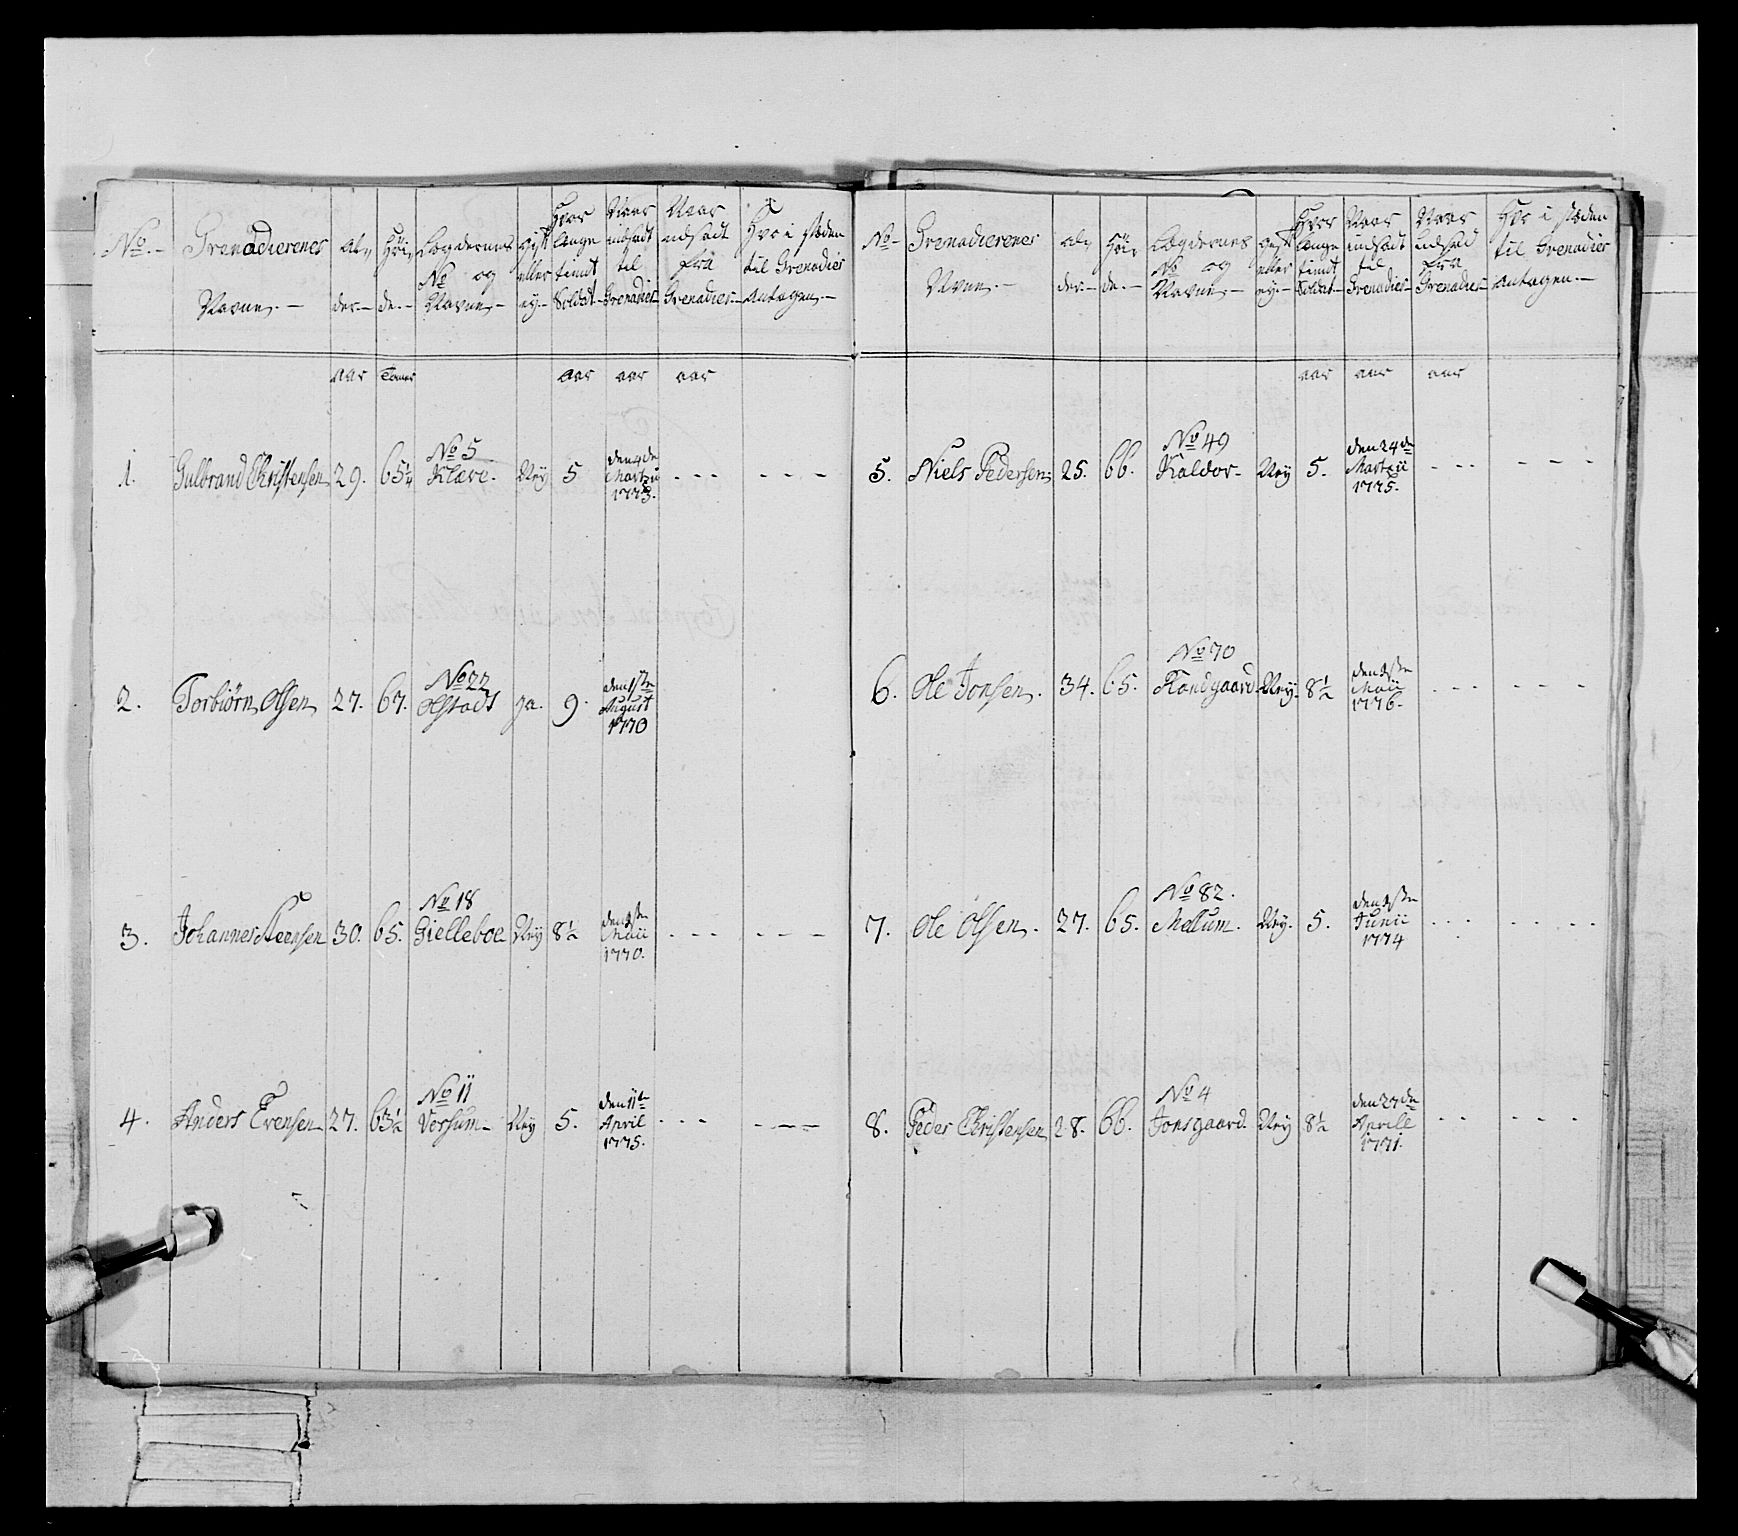 No.- Grenadierenes Navne.- Al- der.- Høi- de.- Lægdernes No og Navne.- Gift eller ey.- Hvor længe tient Soldat.- Naar indsadt til Grenadier.- Naar udsadt fra Grenadier.- Hvo i stæden til Grenadier Antagen.-
Aar Tomer Aar aar aar
1. Gulbrand Christensen 29. 65¼ No 5 Klæve. Ney 5 den 4de Martzii 1773. - - - - - -
2. Torbiörn Olsen 27. 67. No 22 Olstad ja. 9. den 1ste August 1770
3. Johannes Steensen 30. 65. No 18 Gielleboe Ney 8½ den 1ste Maii 1770. - - - - - -
4. Anders Evensen 27. 63½ No 11 Versum- Ney 5. den 11te April 1775. - - - - - - -
No- Grenadierenes Navne.- Al- der.- Høi- de.- Lægdernes No og Navne.- Gift eller ey.- Hvor længe tient Soldat.- Naar indsadt til Grenadier- Naar udsad fra Grenadier- Hvo i stæden til Grenadier Antagen.-
aar aar aar
5. Niels Pedersen 25. 66. No 49 Kaldor- Ney 5. den 24de Martzii 1775. - - - - - - -
6. Ole Jonsen. 34. 65. No 70 Ney. 8½ den 1ste Maii 1776. - - - - - - -
7. Ole Olsen. 27. 65. No 82. Mellum. Ney. 5. den 1ste Junii 1774 - - - - - - -
8. Peder Christensen 28. 66. No 4 Jonsgaard. Ney 8½ den 27de Aprill 1771. - - - - - -